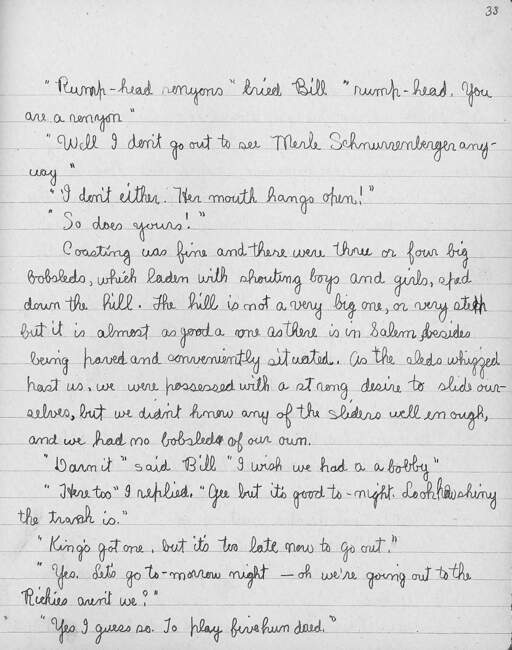 38
"Rump-head ronyons" cried Bill "rump-head. You
are a ronyon"
"Well I don't go out to see Merle Schnurrenberger any-
way"
"I don't either. Her mouth hangs open!"
"So does yours!"
Coasting was fine and there were three or four big
bobsleds, which laden with shouting boys and girls, sped
down the hill. The hill is not a very big one, or very steep
but it is almost as good a one as there is in Salem, besides
being paved and conveniently situated. As the sleds whizzed
past us, we were possessed with a strong desire to slide our-
selves, but we didn't know any of the sliders well enough,
and we had no bobsleds of our own.
"Darn it" said Bill "I wish we had a a bobby"
"Here too" I replied. "Gee but it's good to-night. Look how shiny
the track is."
"King's got one, but it's too late now to go out."
"Yes. Let's go to-morrow night — oh we're going out to the
Richies aren't we?"
" "Yes I guess so. To play five hundred."